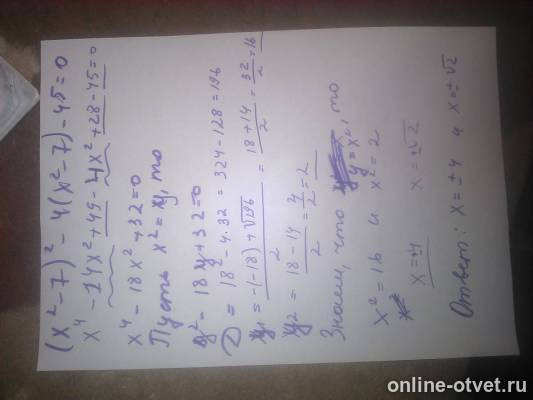 (x²-7)² - 4(x²-7) - 45 = 0
x⁴ - 14x² + 49 - 4x² + 28 - 45 = 0
x⁴ - 18x² + 32 = 0
Пусть x² = y, то
y² - 18y + 32 = 0
D = 18² - 4·32 = 324 - 128 = 196
y₁ = (-(-18) + √196)/2 = (18 + 14)/2 = 32/2 = 16
y₂ = (18 - 14)/2 = 4/2 = 2
Знаем, что y = x², то
x² = 16 и x² = 2
x = ±4 x = ±√2
Ответ: x = ±4 и x = ±√2
online-otvet.ru